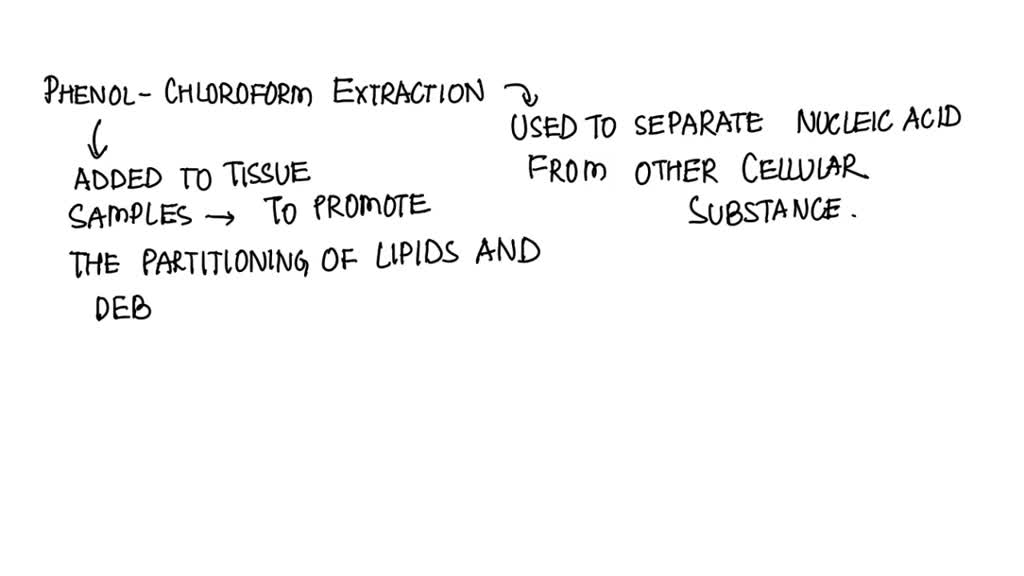 PHENOL - CHLOROFORM EXTRACTION
USED TO SEPARATE NUCLEIC ACID
FROM OTHER CELLULAR
SUBSTANCE.
ADDED TO TISSUE
SAMPLES → TO PROMOTE
THE PARTITIONING OF LIPIDS AND
DEB